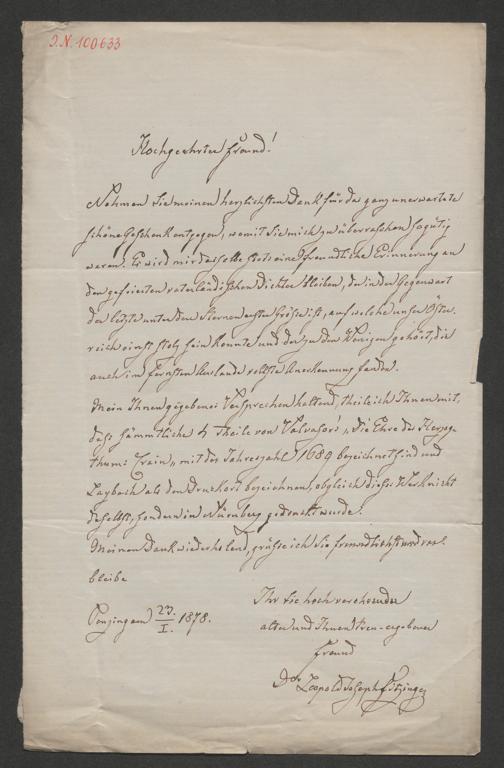 I.N. 100633
Hochgeehrter Freund!
Nehmen Sie meinen herzlichsten Dank für das ganz unerwartete
schöne Geschenk entgegen, womit Sie mich zu überraschen so gütig
waren. Es wird mir dasselbe stets eine freundliche Erinnerung an
den gefeierten vaterländischen Dichter bleiben, der in der Gegenwart
der letzte unter den Sternen erster Größe ist, auf welche unser Öster-
reich einst stolz sein konnte und der zu den Wenigen gehört, die
auch im fernsten Auslande vollste Anerkennung fanden.
Mein Ihnen gegebenes Versprechen haltend, theile ich Ihnen mit,
dass sämmtliche 4 Theile von Valvasor's „Die Ehre des Herzog-
thums Crain" mit der Jahreszahl 1689 bezeichnet sind und
Laybach als den Druckort bezeichnen, obgleich dieses Werk nicht
daselbst, sondern in Nürnberg gedruckt wurde.
Meinen Dank wiederholend, grüße ich Sie freundlichst und ver-
bleibe
Ihr Sie hoch verehrender
Penzing am 23./I. 1878.
alter und Ihnen treu-ergebener
Freund
Dr. Leopold Joseph Fitzinger